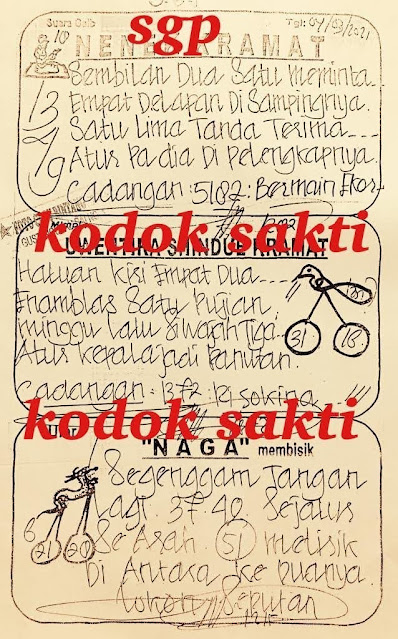 Suara Gaib
Tgl: 04/03/2021
10
NENE KRAMAT
sgp
Sembilan Dua Satu Meminta
13
Empat Delapan Di Sampingnya.
Satu Lima Tanda Terima
79
Atus Pa dia Di Pelengkapnya.
Cadangan: 5187: Bermain Ekor
kodok sakti
KRAMAT
Haluan Kiri Empat Dua
Enamblas Satu Pujian
Minggu Lalu Siwajah Tiga
Atus Kepala jadi Panutan.
31 18
Cadangan: 1372:
kodok sakti
"NAGA" membisik
Segenggam Tangan
Lagi. 37.40. Sejalus
6
21 20
Se Arah. 51 melisik
Di Antara Ke Duanya.